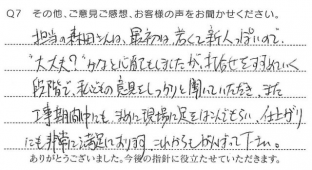 Q7 その他、ご意見ご感想、お客様の声をお聞かせください。
担当の森田さんは、最初は、若くて新人っぽいので、
"大丈夫?"かなと心配でしたが、打合せをすすめていく
段階で、私どもの意見をしっかりと聞いていただき、また
工事期間中にも、まめに現場に足をはこんでもらい、仕上がり
にも非常に満足しております。これからもがんばって下さい。
ありがとうございました。今後の指針に役立たせていただきます。